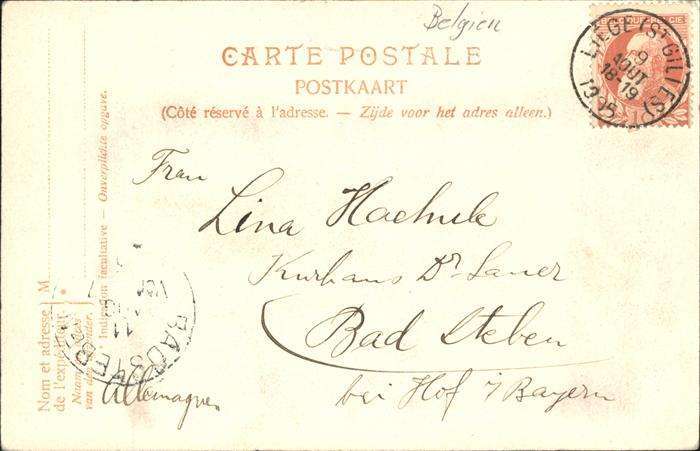 Belgien
CARTE POSTALE
POSTKAART
(Côté réservé à l'adresse. — Zijde voor het adres alleen.)
LIÈGE (ST GILLES)
9
AOUT
18-19
1905
10
Frau
Lina Haehnle
Kurhaus Dr Saner
Bad Steben
bei Hof i/Bayern
Allemagne
Nom et adresse
de l'expéditeur.
Naam
van den afzender.
M
Indication facultative — Onverplichte opgave.
BAD STEBEN
11